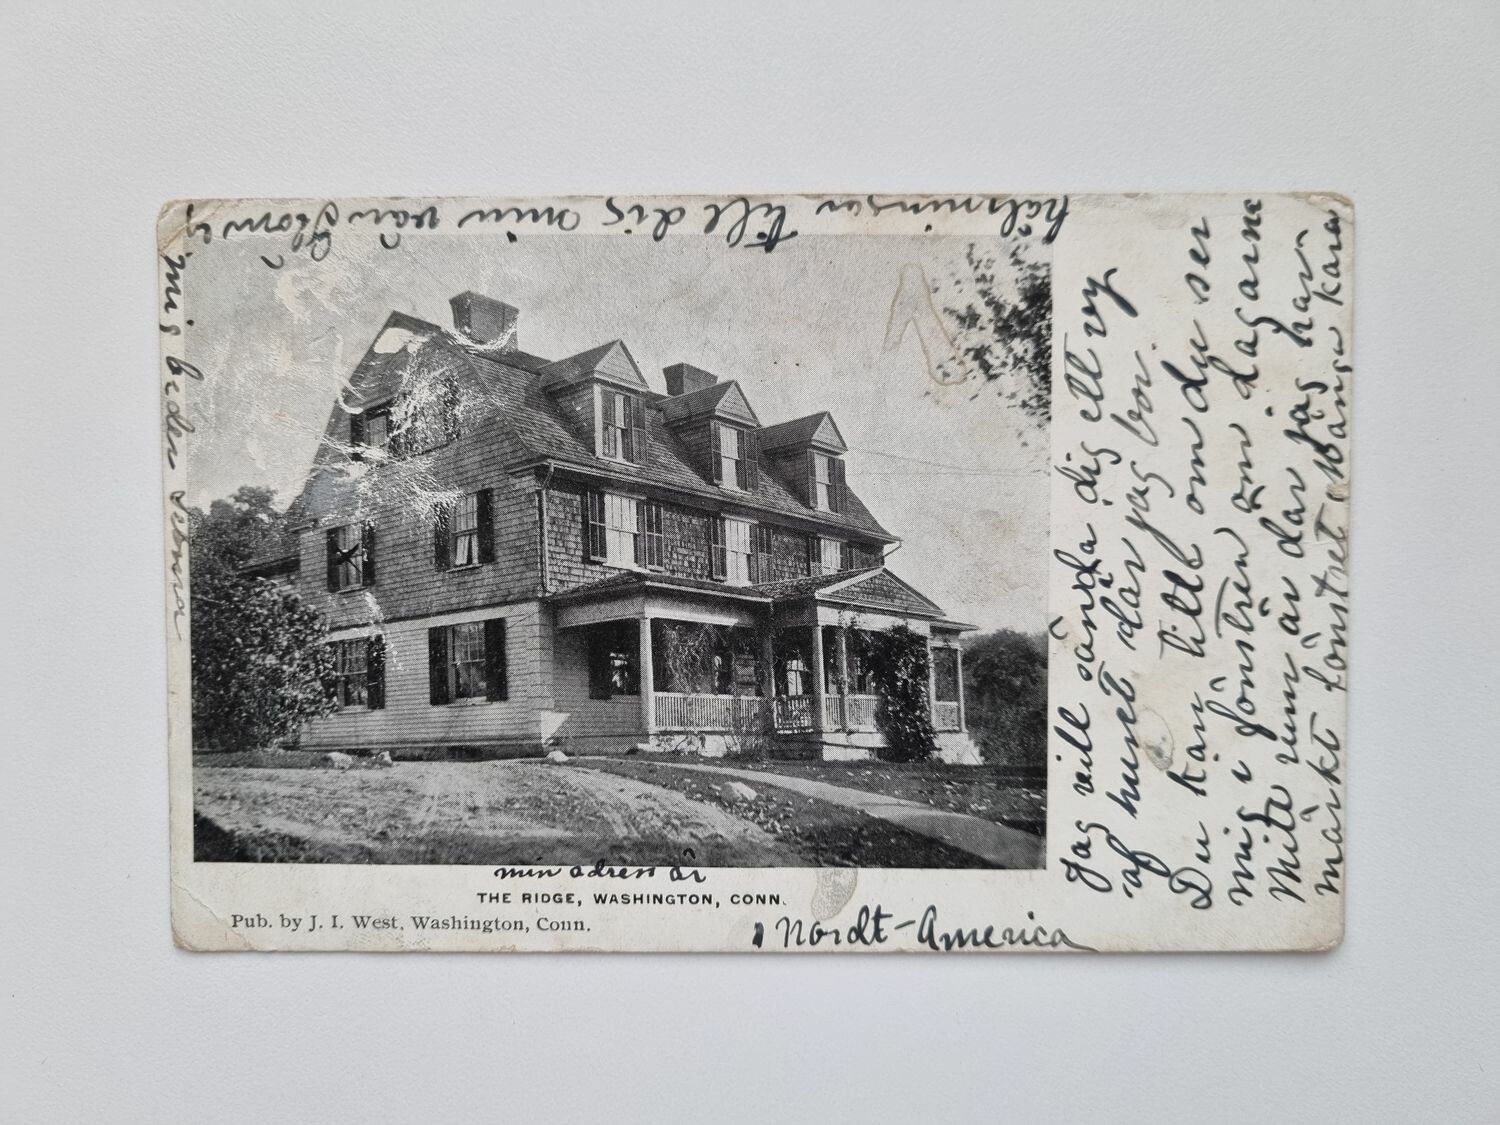 Jag vill sända dig ett vy
af huset där jag bor.
Du kan titt om du ser
mig i fönstren om dagarne
Mitt rum är dar jag har
märkt fönstret Många kära
hälsningar till dig min vän
mig beder
min adress är
THE RIDGE, WASHINGTON, CONN.
Pub. by J. I. West, Washington, Conn.
Nordt-America